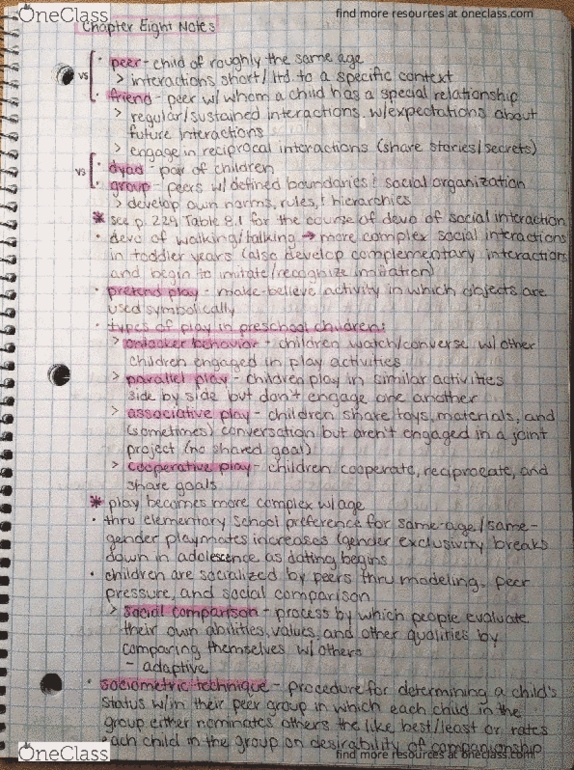 OneClass
find more resources at oneclass.com
Chapter Eight Notes
vs
• peer - child of roughly the same age
> interactions short/ltd. to a specific context
• friend - peer w/ whom a child has a special relationship
> regular/sustained interactions w/expectations about
future interactions
> engage in reciprocal interactions (share stories/secrets)
vs
• dyad - pair of children
• group - peers w/ defined boundaries & social organization
> develop own norms, rules, & hierarchies
* see p. 229 Table 8.1 for the course of devo of social interaction
• devo of walking/talking → more complex social interactions
in toddler years (also develop complementary interactions
and begin to imitate/recognize imitation)
• pretend play - make-believe activity in which objects are
used symbolically
• types of play in preschool children:
> onlooker behavior - children watch/converse w/ other
children engaged in play activities
> parallel play - children play in similar activities
side by side but don't engage one another
> associative play - children share toys, materials, and
(sometimes) conversation but aren't engaged in a joint
project (no shared goal)
> cooperative play - children cooperate, reciprocate, and
share goals
* play becomes more complex w/age
• thru elementary school preference for same-age/same-
gender playmates increases (gender exclusivity breaks
down in adolescence as dating begins
• children are socialized by peers thru modeling, peer
pressure, and social comparison
> social comparison - process by which people evaluate
their own abilities, values, and other qualities by
comparing themselves w/ others
- adaptive
• sociometric technique - procedure for determining a child's
status w/in their peer group in which each child in the
group either nominates others the like best/least or rates
each child in the group on desirability of companionship
OneClass
find more resources at oneclass.com